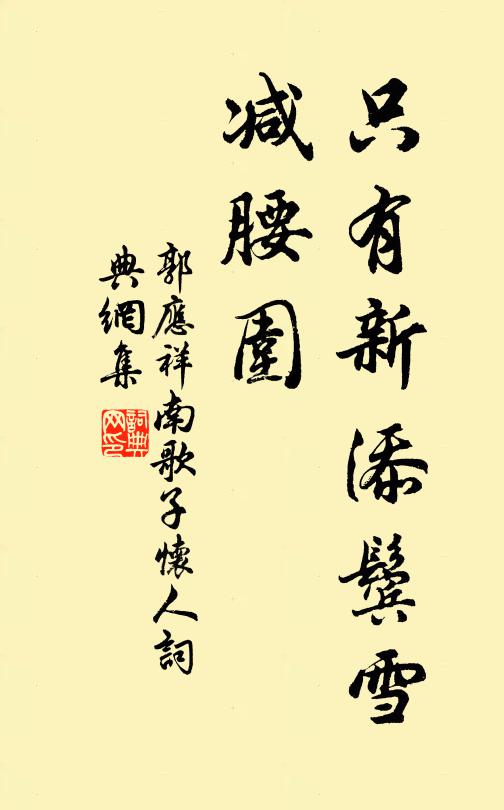 只有新添鬢雪
减腰圍
郭應祥南歌子懷人詞
典網集
詞典网印